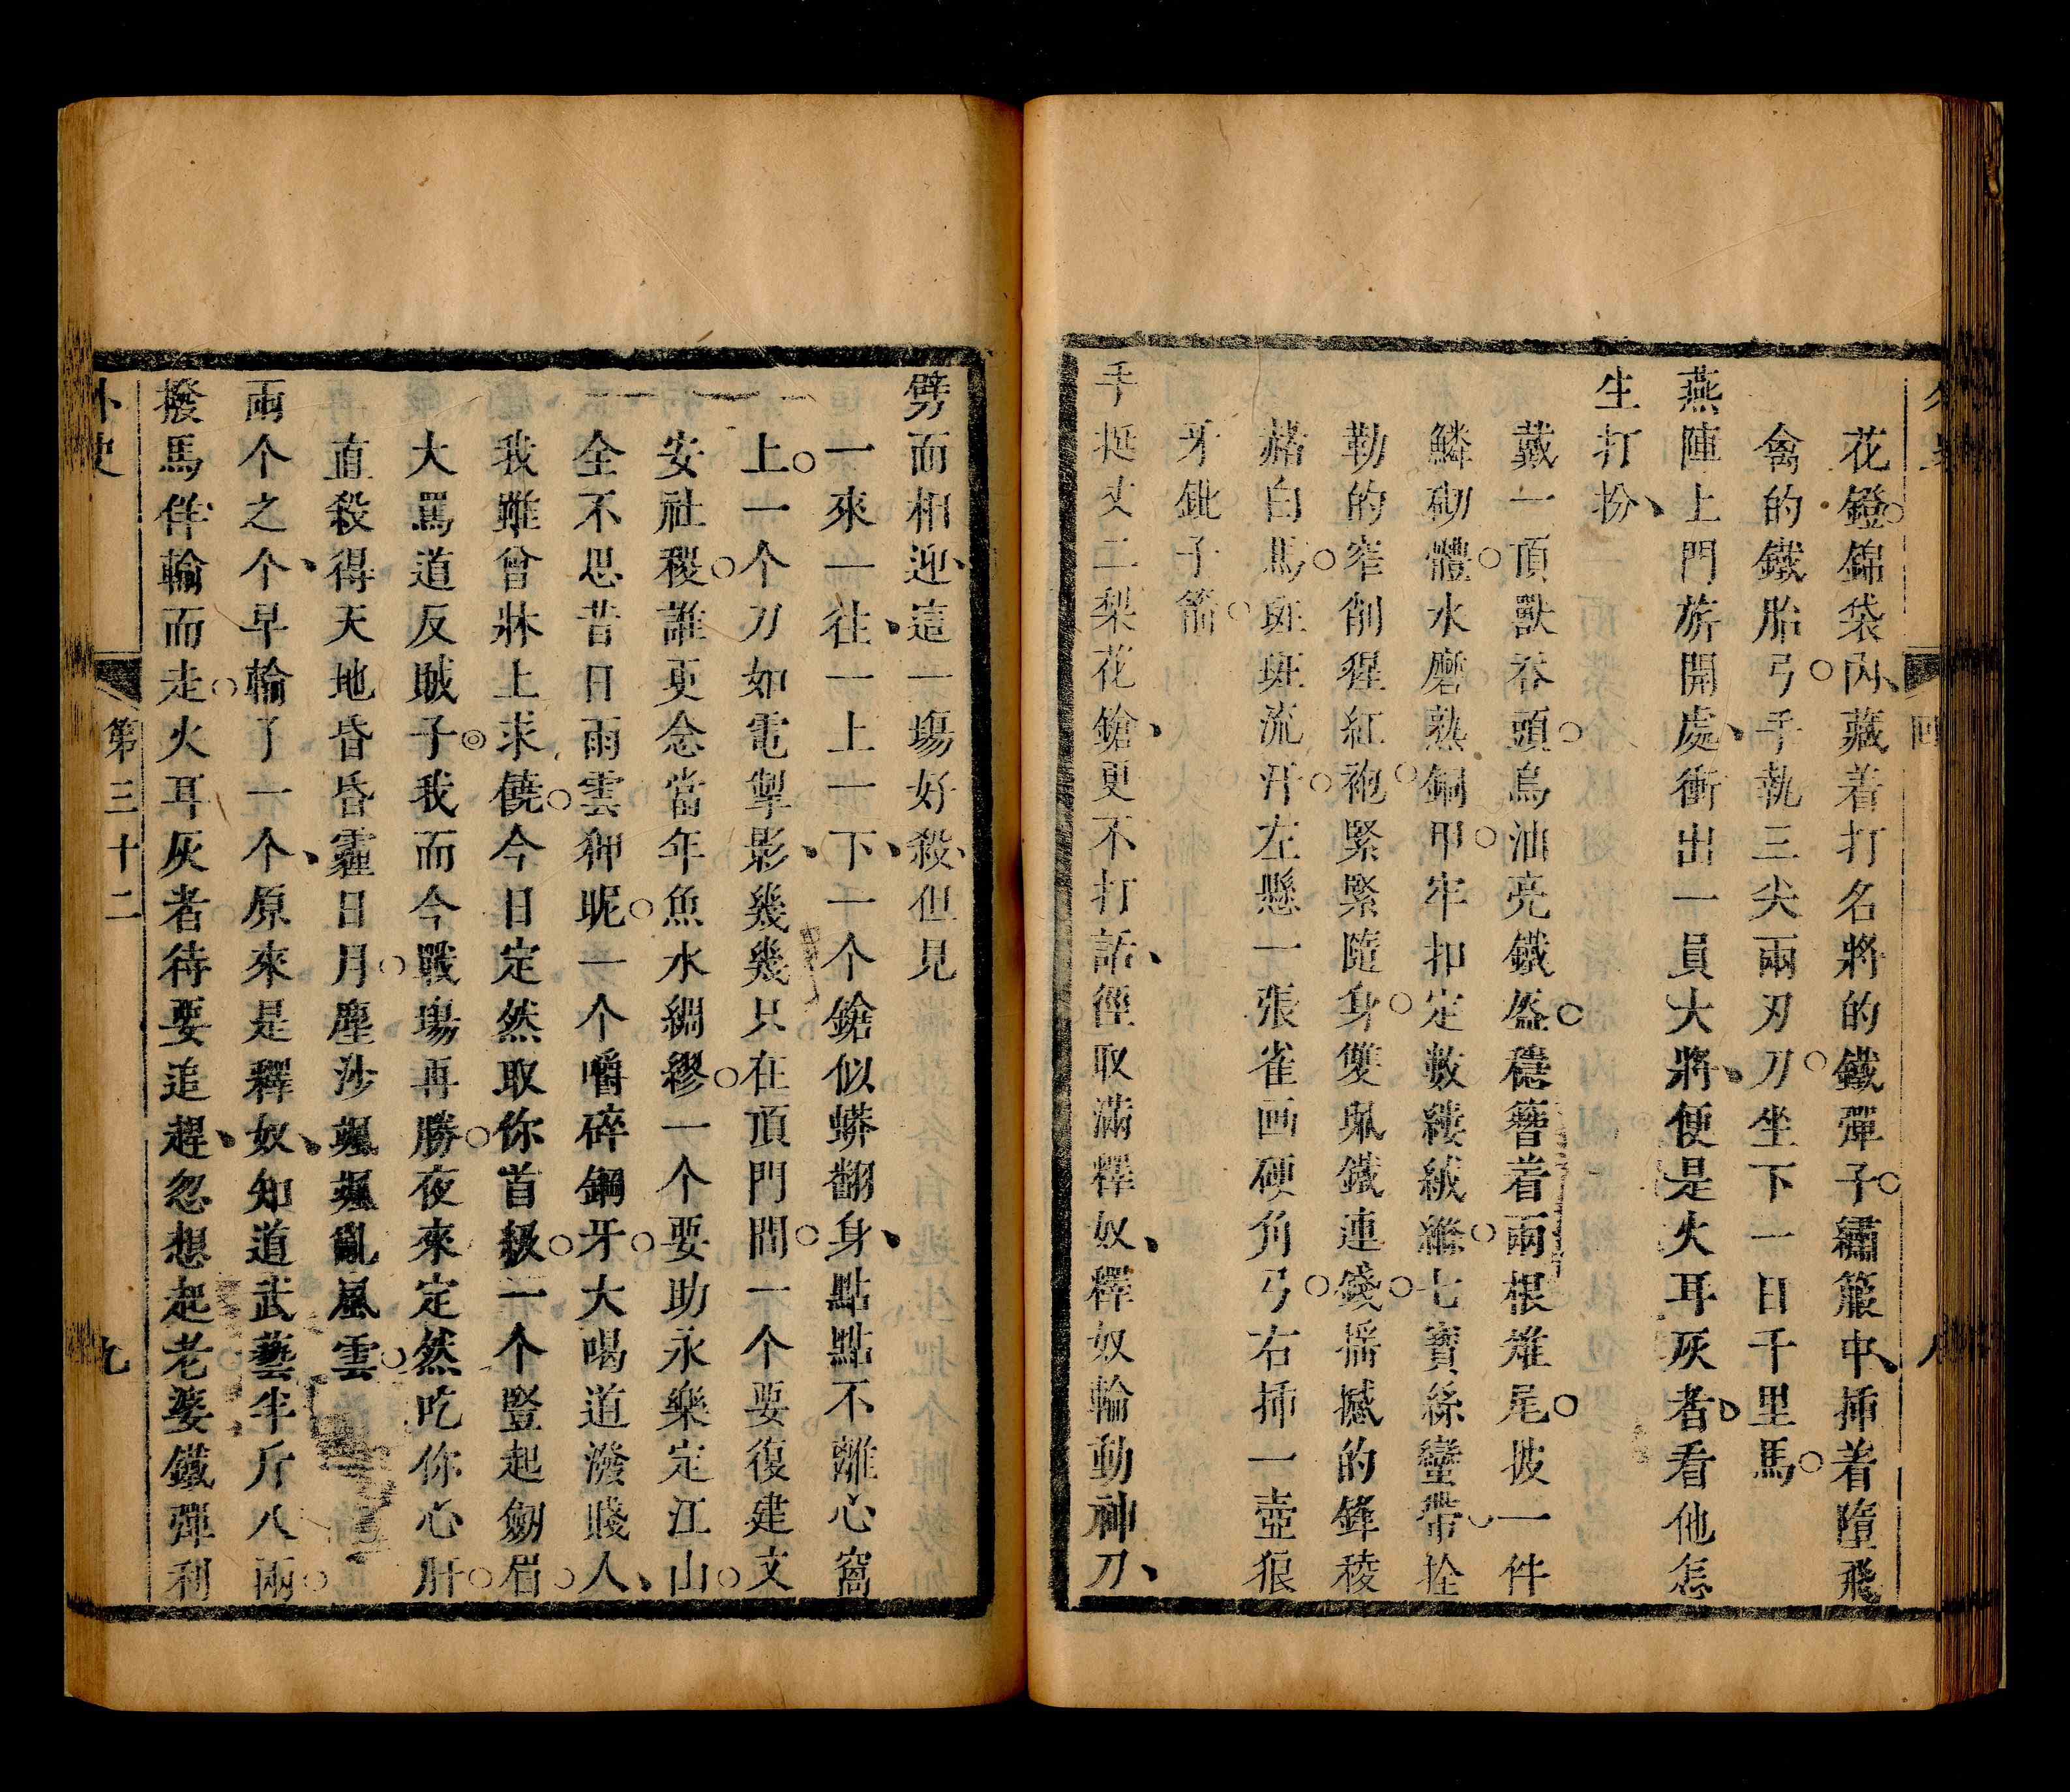 花鐙錦袋內藏着打名將的鐵彈子繡箙中揷着墮飛
禽的鐵胎弓手執三尖兩刃刀坐下一日千里馬
燕陣上門旂開處衝出一員大將便是火耳灰者看他怎
生打扮
戴一頂獸呑頭烏油亮鐵盔穩簪着兩根雉尾披一件
鱗砌體水磨熟銅甲牢扣定數縷絨縧七寶絲蠻帶拴
勒的窄削猩紅袍緊緊隨身雙臥鐵連錢摇撼的鋒稜
赭白馬斑斑流汗左懸一張雀画硬角弓右揷一壺狼
牙鈚子箭
手挺丈二梨花鎗更不打話徑取滿釋奴釋奴輪動神刀
劈而相迎這一塲好殺但見
一來一往一上一下一个鎗似蟒翻身點點不離心窩
上一个刀如電掣影幾幾只在頂門間一个要復建文
安社稷誰更念當年魚水綢繆一个要助永樂定江山
全不思昔日雨雲狎昵一个嚼碎鋼牙大喝道潑賤人
我雖曾牀上求饒今日定然取你首級一个豎起劒眉
大罵道反賊子我而今戰塲再勝夜來定然吃你心肝
直殺得天地昏昏霾日月塵沙颯颯亂風雲
兩个之个早輸了一个原來是釋奴知道武藝半斤八兩
撥馬佯輸而走火耳灰者待要追趕忽想起老婆鐵彈利
外史
第三十二
九